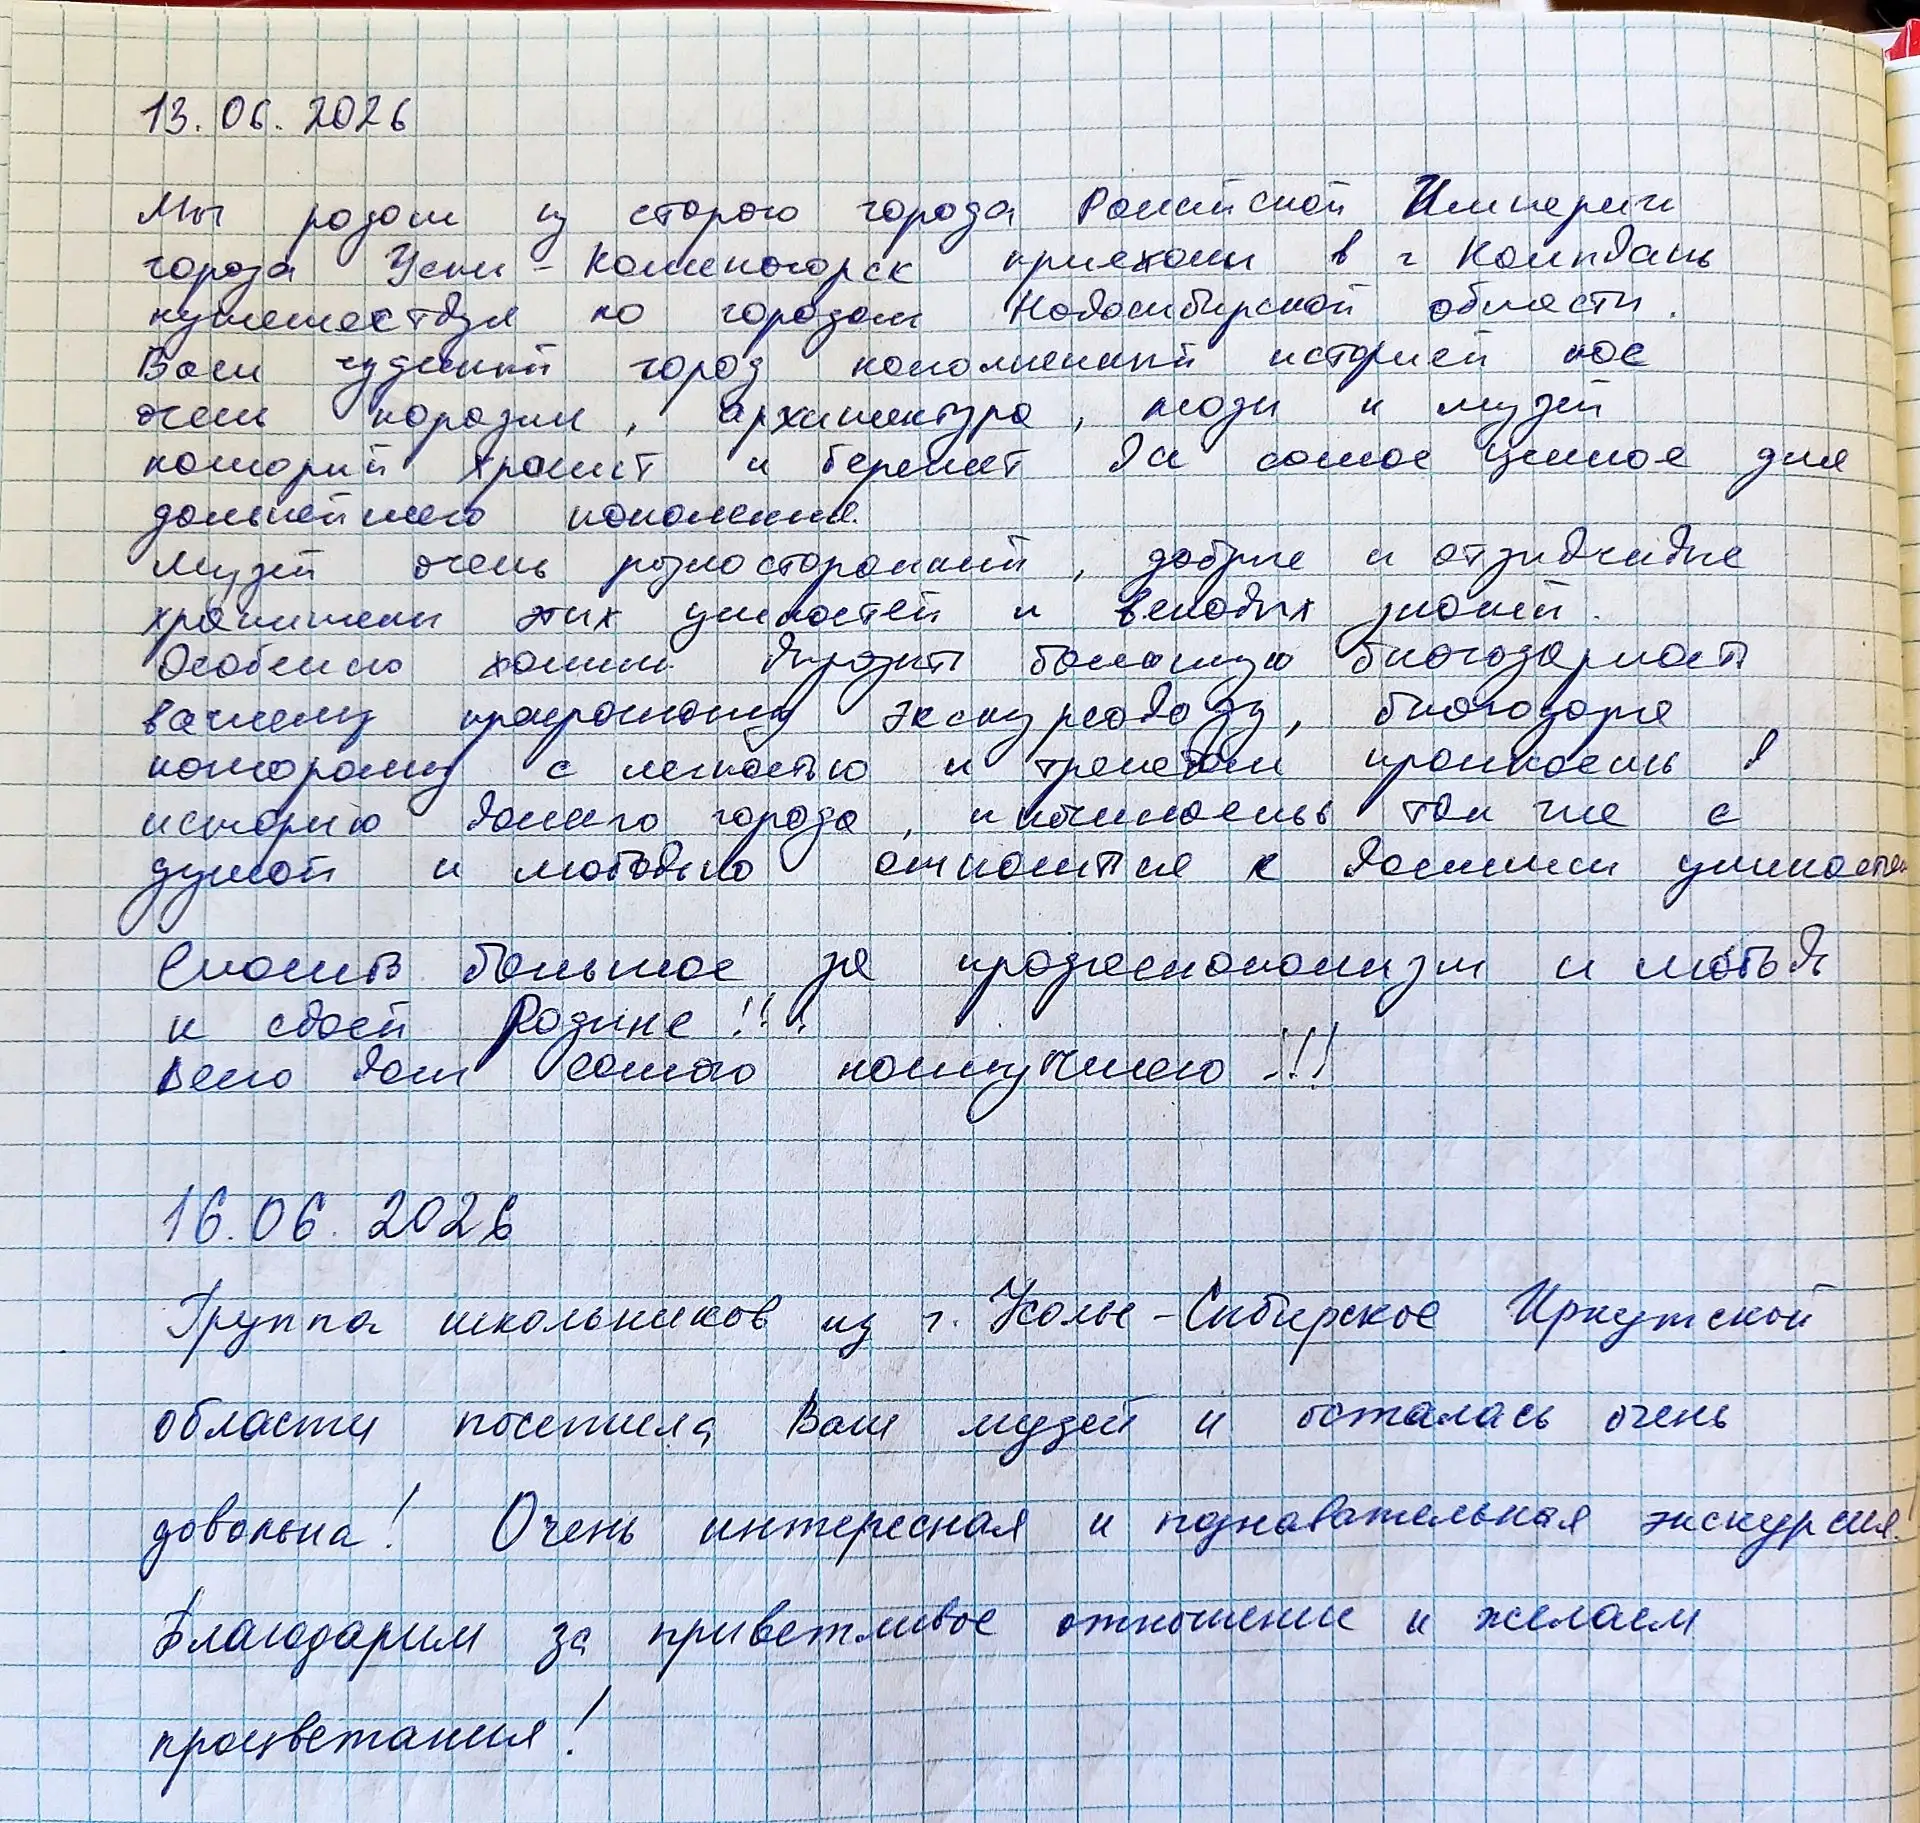 13.06.2026
Мы родом из старого города Российской Империи
города Усть-Каменогорск приехали в г Колывань
путешествуя по городам Новосибирской области.
Ваш чудесный город наполненный историей нас
очень поразил, архитектура, люди и музей
который хранит и бережет все самое ценное для
дальнейшего поколения.
Музей очень разносторонний, добрые и отзывчивые
хранители этих ценностей и вековых знаний.
Особенно хотим выразить большую благодарность
вашему прекрасному экскурсоводу, благодаря
которому с легкостью и трепетом проникаешь в
историю вашего города, и начинаешь так же с
душой и любовью относится к вашим ценностям
Спасибо большое за профессионализм и любовь
к своей Родине!!!
Всего вам самого наилучшего!!!
16.06.2026
Группа школьников из г. Усолье-Сибирское Иркутской
области посетила Ваш музей и осталась очень
довольна! Очень интересная и познавательная экскурсия!
Благодарим за приветливое отношение и желаем
процветания!